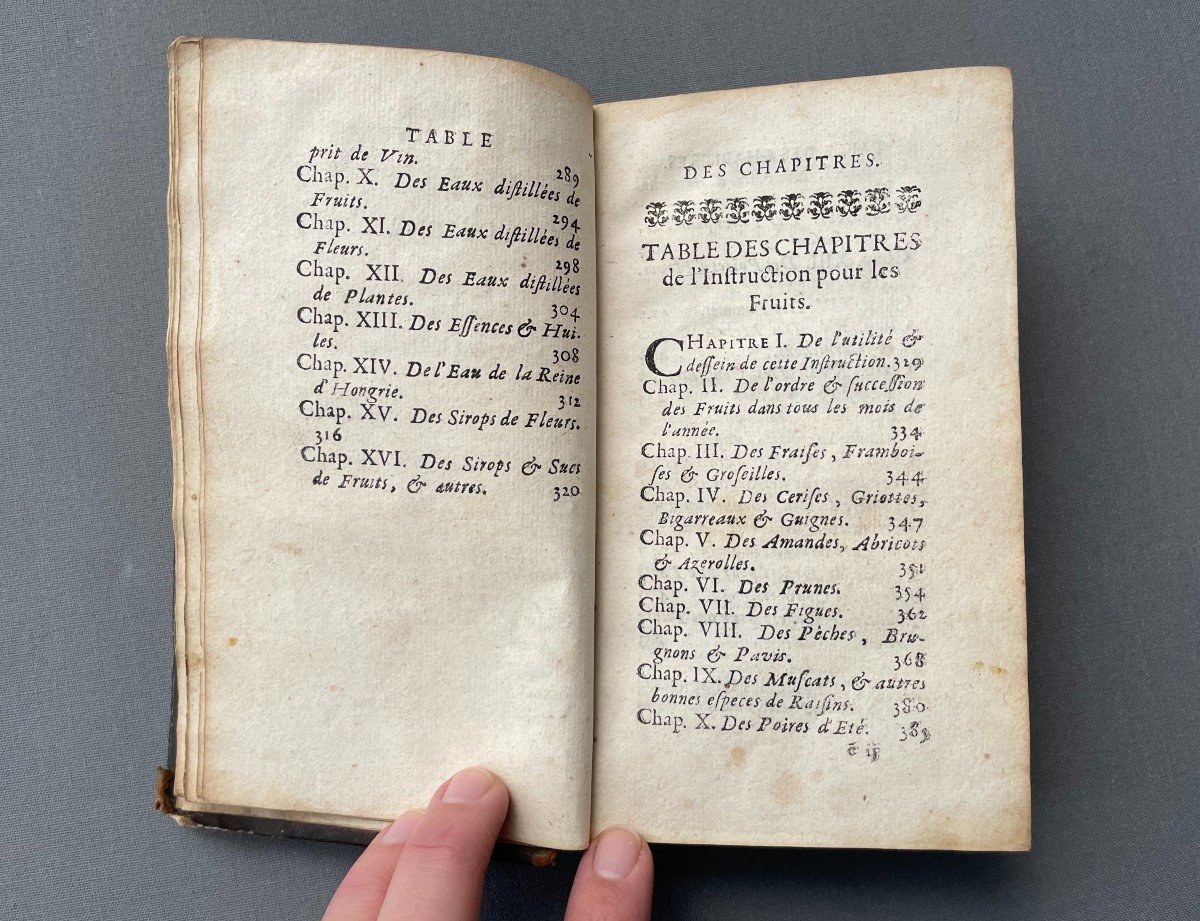 TABLE
prit de Vin. 289
Chap. X. Des Eaux diſtillées de
Fruits. 294
Chap. XI. Des Eaux diſtillées de
Fleurs. 298
Chap. XII. Des Eaux diſtillées
de Plantes. 304
Chap. XIII. Des Eſſences & Hui-
les. 308
Chap. XIV. De l'Eau de la Reine
d'Hongrie. 312
Chap. XV. Des Sirops de Fleurs.
316
Chap. XVI. Des Sirops & Sucs
de Fruits, & autres. 320
DES CHAPITRES.
TABLE DES CHAPITRES
de l'Inſtruction pour les
Fruits.
CHAPITRE I. De l'utilité &
deſſein de cette Inſtruction. 329
Chap. II. De l'ordre & ſucceſſion
des Fruits dans tous les mois de
l'année. 334
Chap. III. Des Fraiſes, Framboi-
ſes & Groſeilles. 344
Chap. IV. Des Ceriſes, Griottes,
Bigarreaux & Guignes. 347
Chap. V. Des Amandes, Abricots
& Azerolles. 351
Chap. VI. Des Prunes. 354
Chap. VII. Des Figues. 362
Chap. VIII. Des Pèches, Bru-
gnons & Pavis. 368
Chap. IX. Des Muſcats, & autres
bonnes eſpeces de Raiſins. 380
Chap. X. Des Poires d'Eté. 389
ē iij